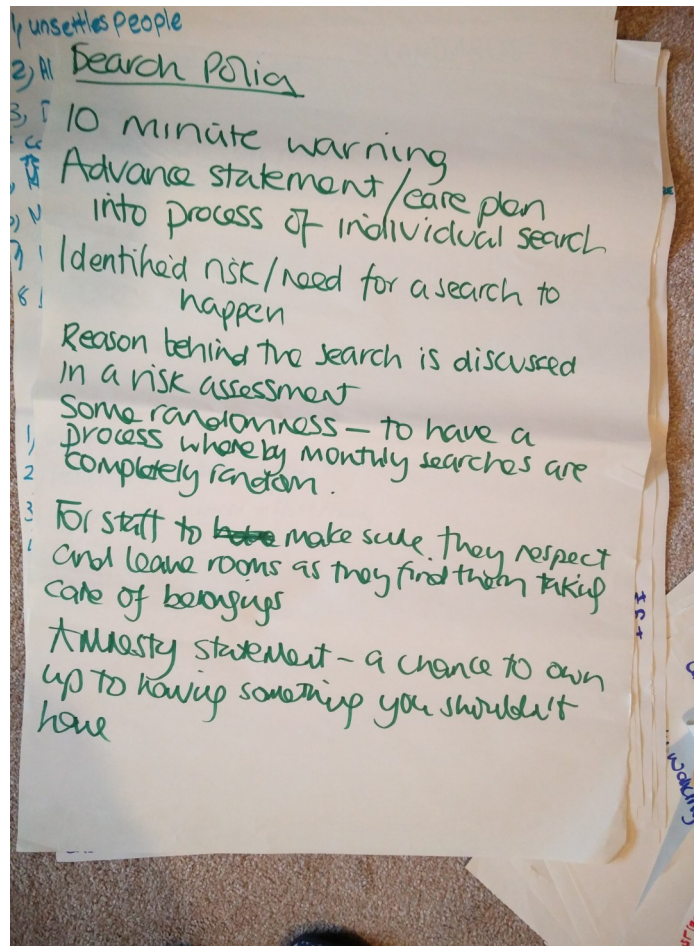 1, unsettles people
2, Al
3,
8
Search Policy
10 minute warning
Advance statement/care plan
into process of individual search
Identified risk/need for a search to
happen
Reason behind the search is discussed
in a risk assessment
Some randomness – to have a
process whereby monthly searches are
completely random.
For staff to have make sure they respect
and leave rooms as they find them taking
care of belongings
Amnesty statement – a chance to own
up to having something you shouldn't
have
1,
2
3
wanting